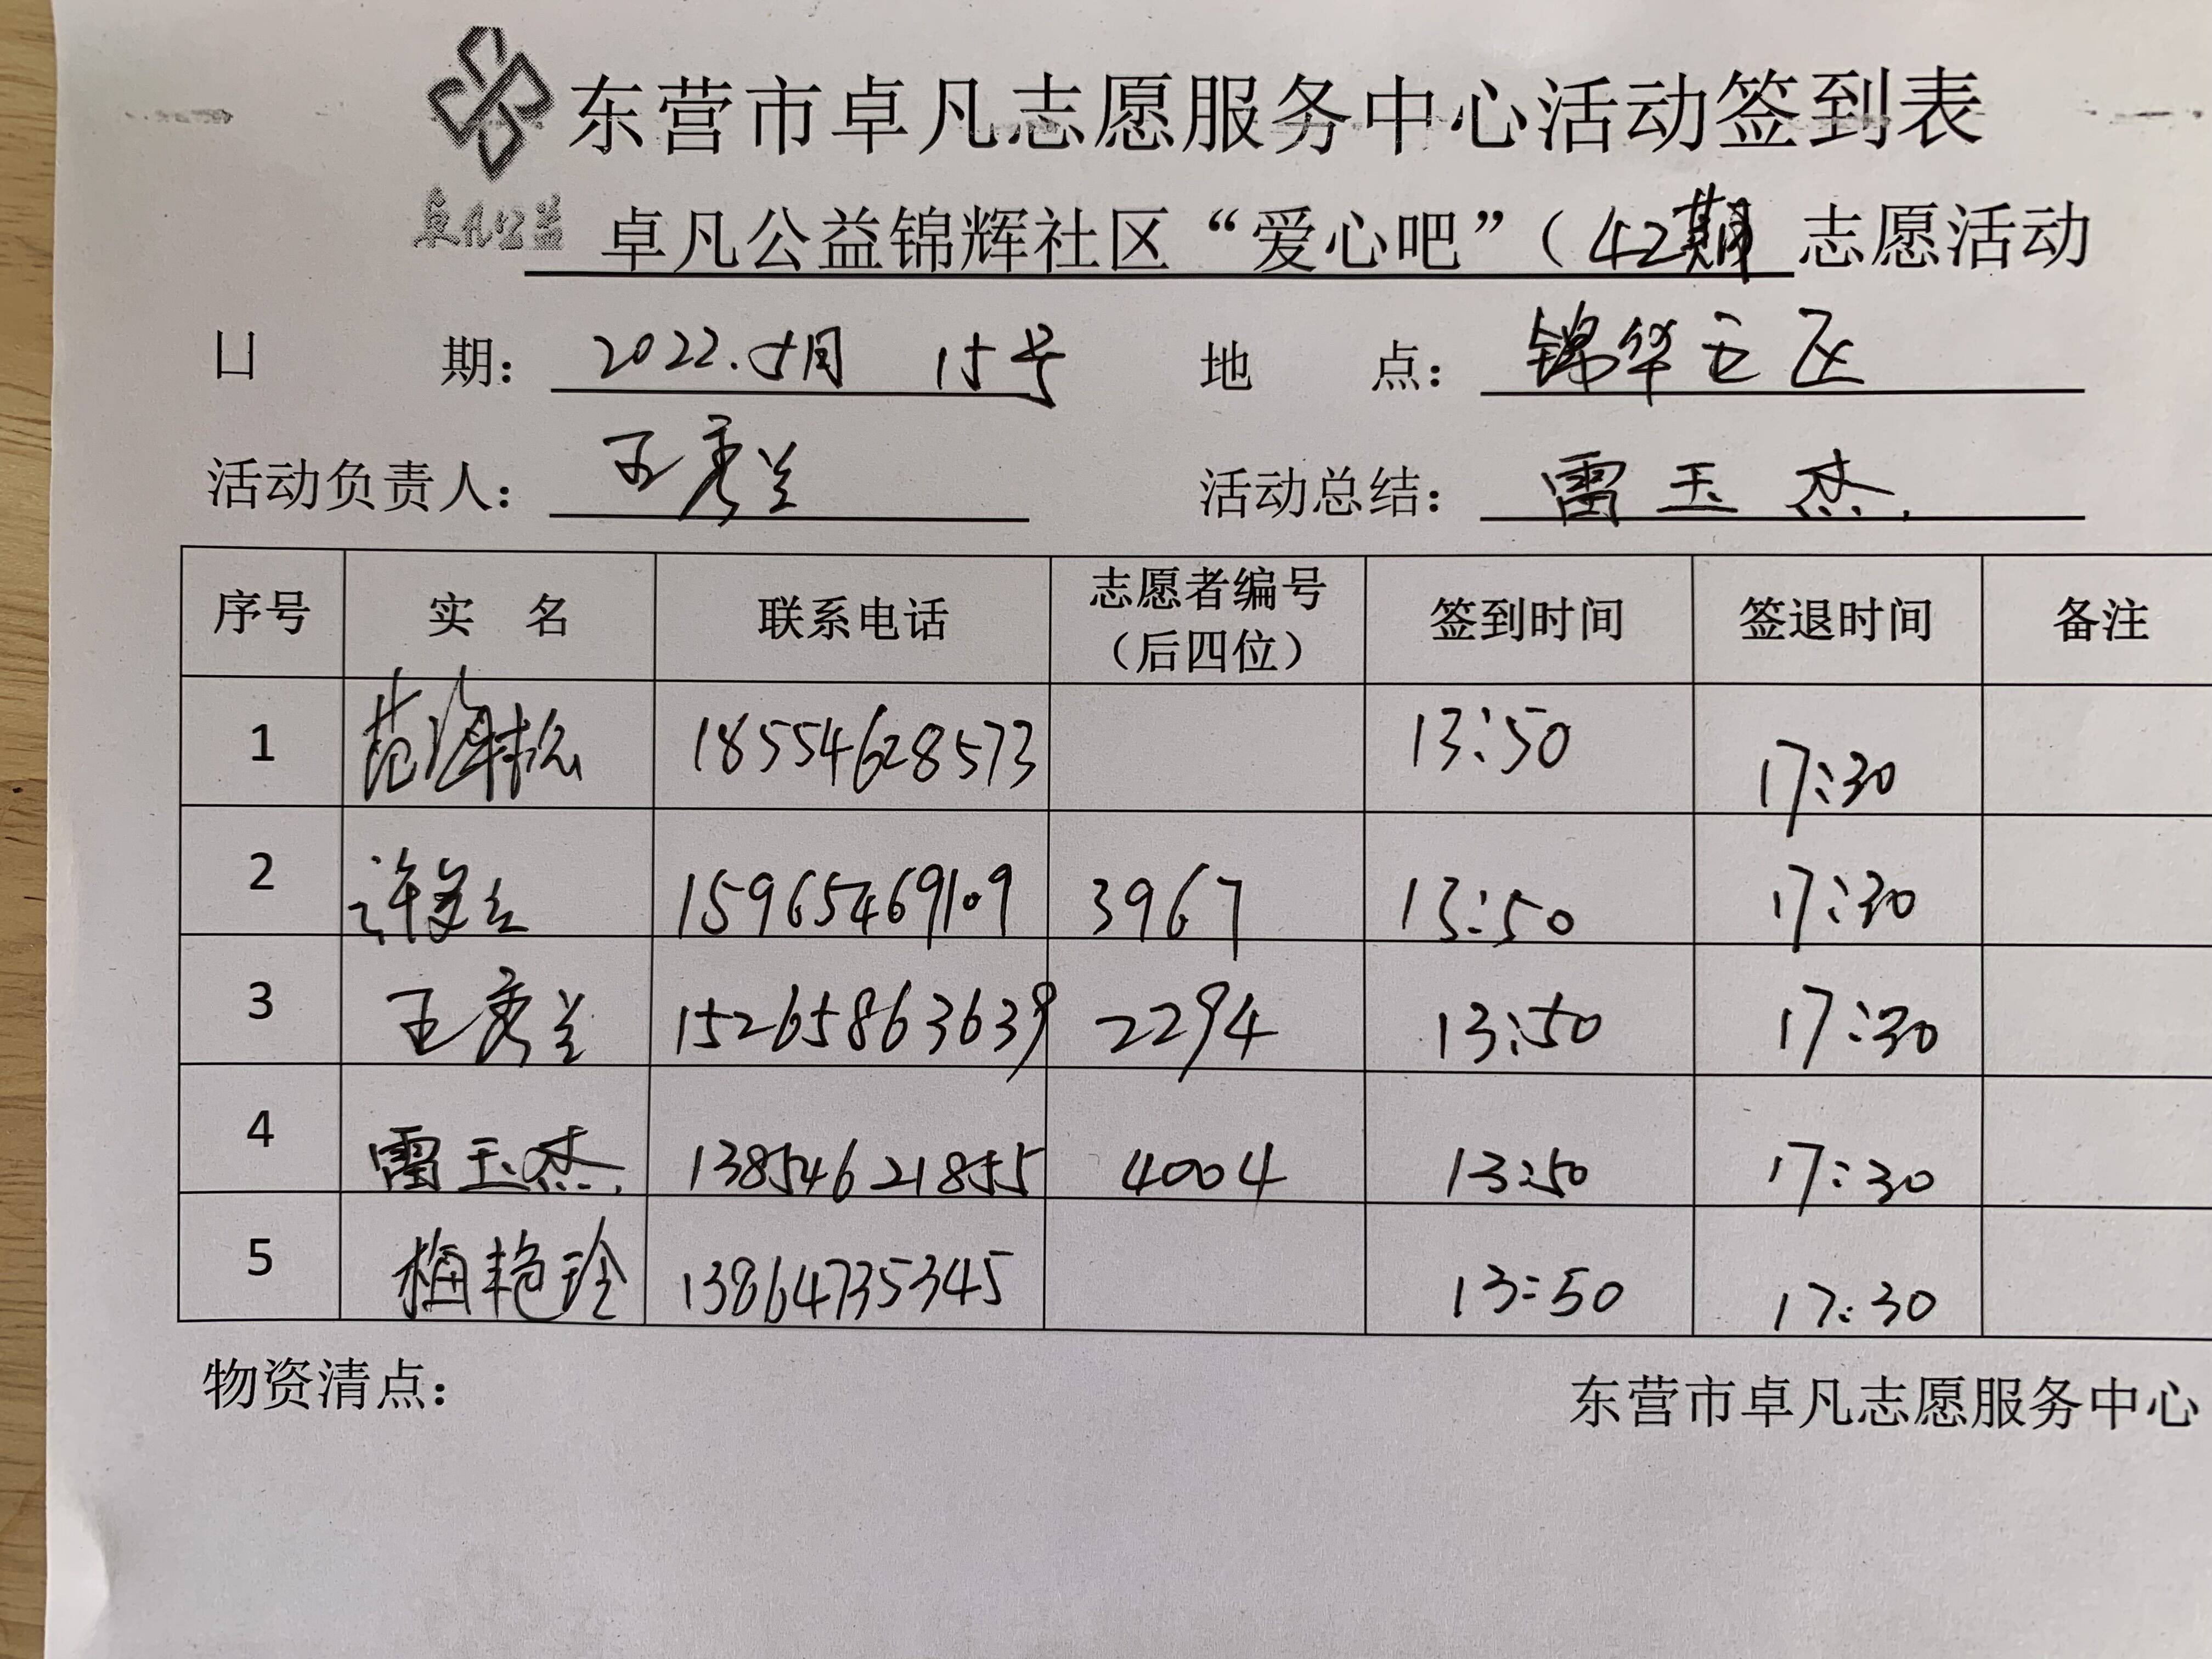 东营市卓凡志愿服务中心活动签到表
卓凡公益
卓凡公益锦辉社区“爱心吧”（42期 志愿活动
日 期： 2022.5月 15号 地 点： 锦华社区
活动负责人： 王秀兰 活动总结： 雷玉杰.
序号 实 名 联系电话 志愿者编号（后四位） 签到时间 签退时间 备注
1 范海松 18554628573 13:50 17:30
2 许 15965469109 3967 13:50 17:30
3 王秀兰 15265863639 2294 13:50 17:30
4 雷玉杰. 13854621855 4004 13:50 17:30
5 梅艳玲 13864735345 13:50 17:30
物资清点：
东营市卓凡志愿服务中心